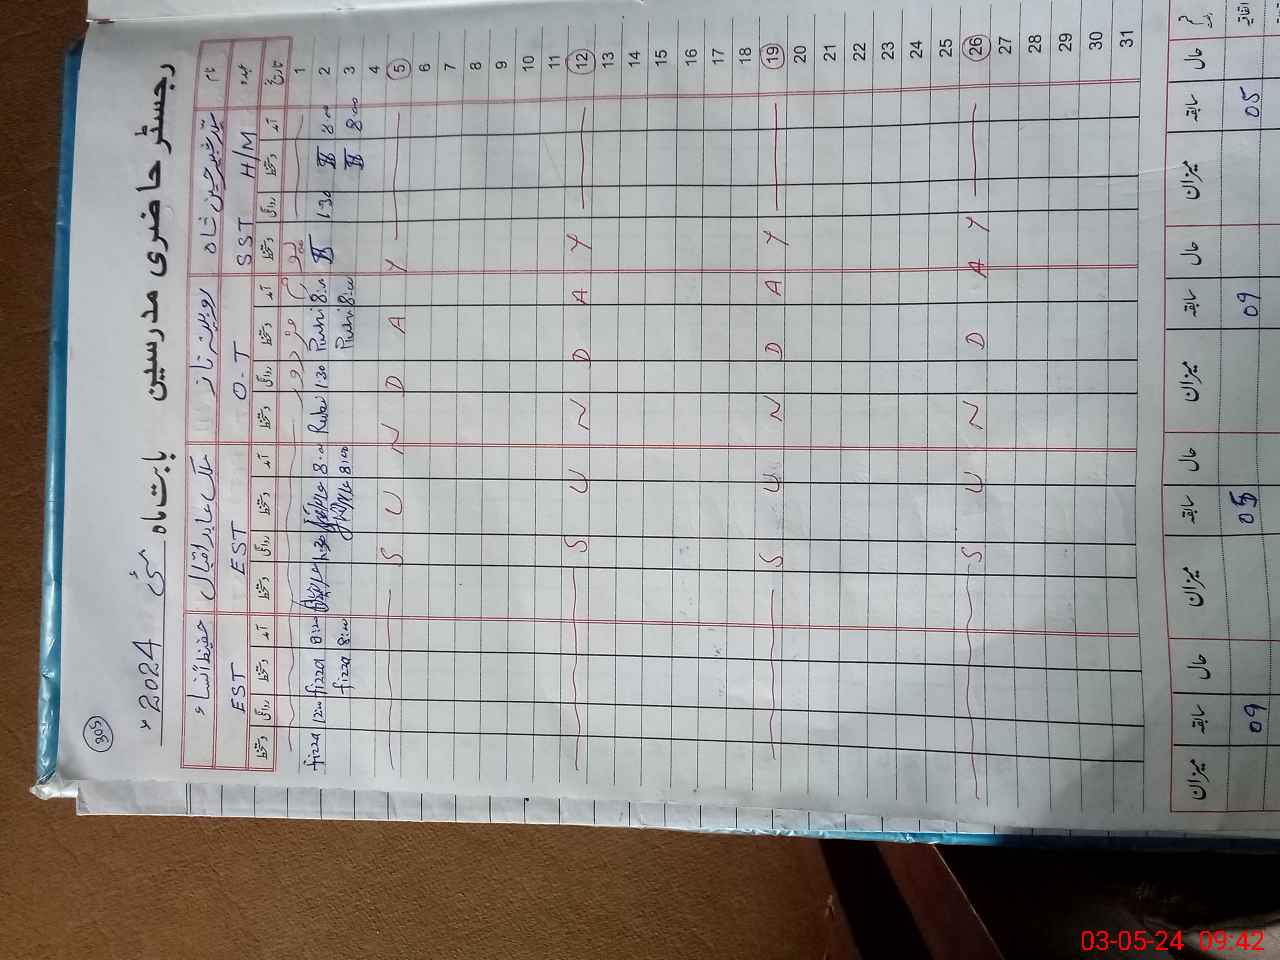 305
رجسٹر حاضری مدرسین بابت ماہ مئی 2024ء
نام
روبینہ ناز
ملک عابد اقبال
حفیظ النساء
عہدہ SST H/M O-T EST EST
تاریخ آمد دستخط روانگی دستخط آمد دستخط روانگی دستخط آمد دستخط روانگی دستخط آمد دستخط روانگی دستخط
1
2 8:00 1:30 8:00 1:30 Rubi 8:00 1:30 8:00 fizza 1200 fizza
3 8:00 8:00 8:00 8:00 fizza
4
5 Y A D N U S
6
7
8
9
10
11
12 Y A D N U S
13
14
15
16
17
18
19 Y A D N U S
20
21
22
23
24
25
26 Y A D N U S
27
28
29
30
31
حال سابقہ میزان حال سابقہ میزان حال سابقہ میزان حال سابقہ میزان
اتفاقیہ 05 09 05 09
03-05-24 09:42